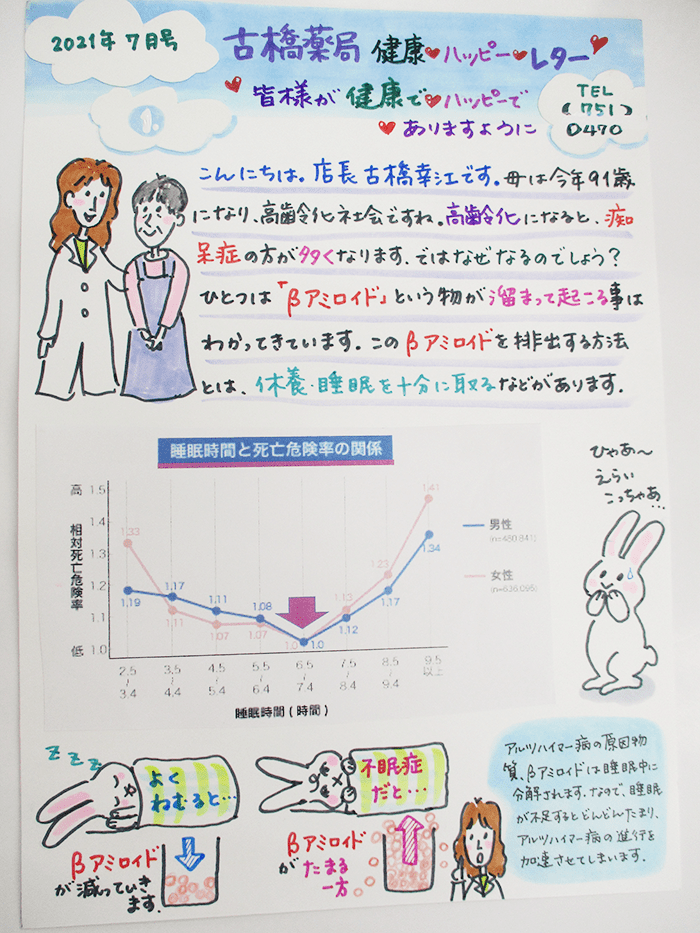 2021年 7月号
古橋薬局 健康 ハッピー レター
皆様が 健康で ハッピーで
ありますように
TEL
(751)
0470
1.
こんにちは。店長 古橋幸江です。母は今年91歳
になり、高齢化社会ですね。高齢化になると、痴
呆症の方が多くなります。ではなぜなるのでしょう？
ひとつは「βアミロイド」という物が溜まって起こる事は
わかってきています。このβアミロイドを排出する方法
とは、休養・睡眠を十分に取るなどがあります。
睡眠時間と死亡危険率の関係
高 1.5
1.4
1.3
1.2
1.1
低 1.0
相対死亡危険率
1.33 1.11 1.07 1.07 1.0 1.13 1.23 1.41
1.19 1.17 1.11 1.08 1.0 1.12 1.17 1.34
男性
(n=480,841)
女性
(n=636,095)
2.5～3.4 3.5～4.4 4.5～5.4 5.5～6.4 6.5～7.4 7.5～8.4 8.5～9.4 9.5以上
睡眠時間(時間)
ひゃあ～
えらい
こっちゃあ…
z z z
よく
ねむると…
βアミロイド
が減っていき
ます.
不眠症
だと…
βアミロイド
がたまる
一方
アルツハイマー病の原因物
質、βアミロイドは睡眠中に
分解されます。なので、睡眠
が不足するとどんどんたまり、
アルツハイマー病の進行を
加速させてしまいます.